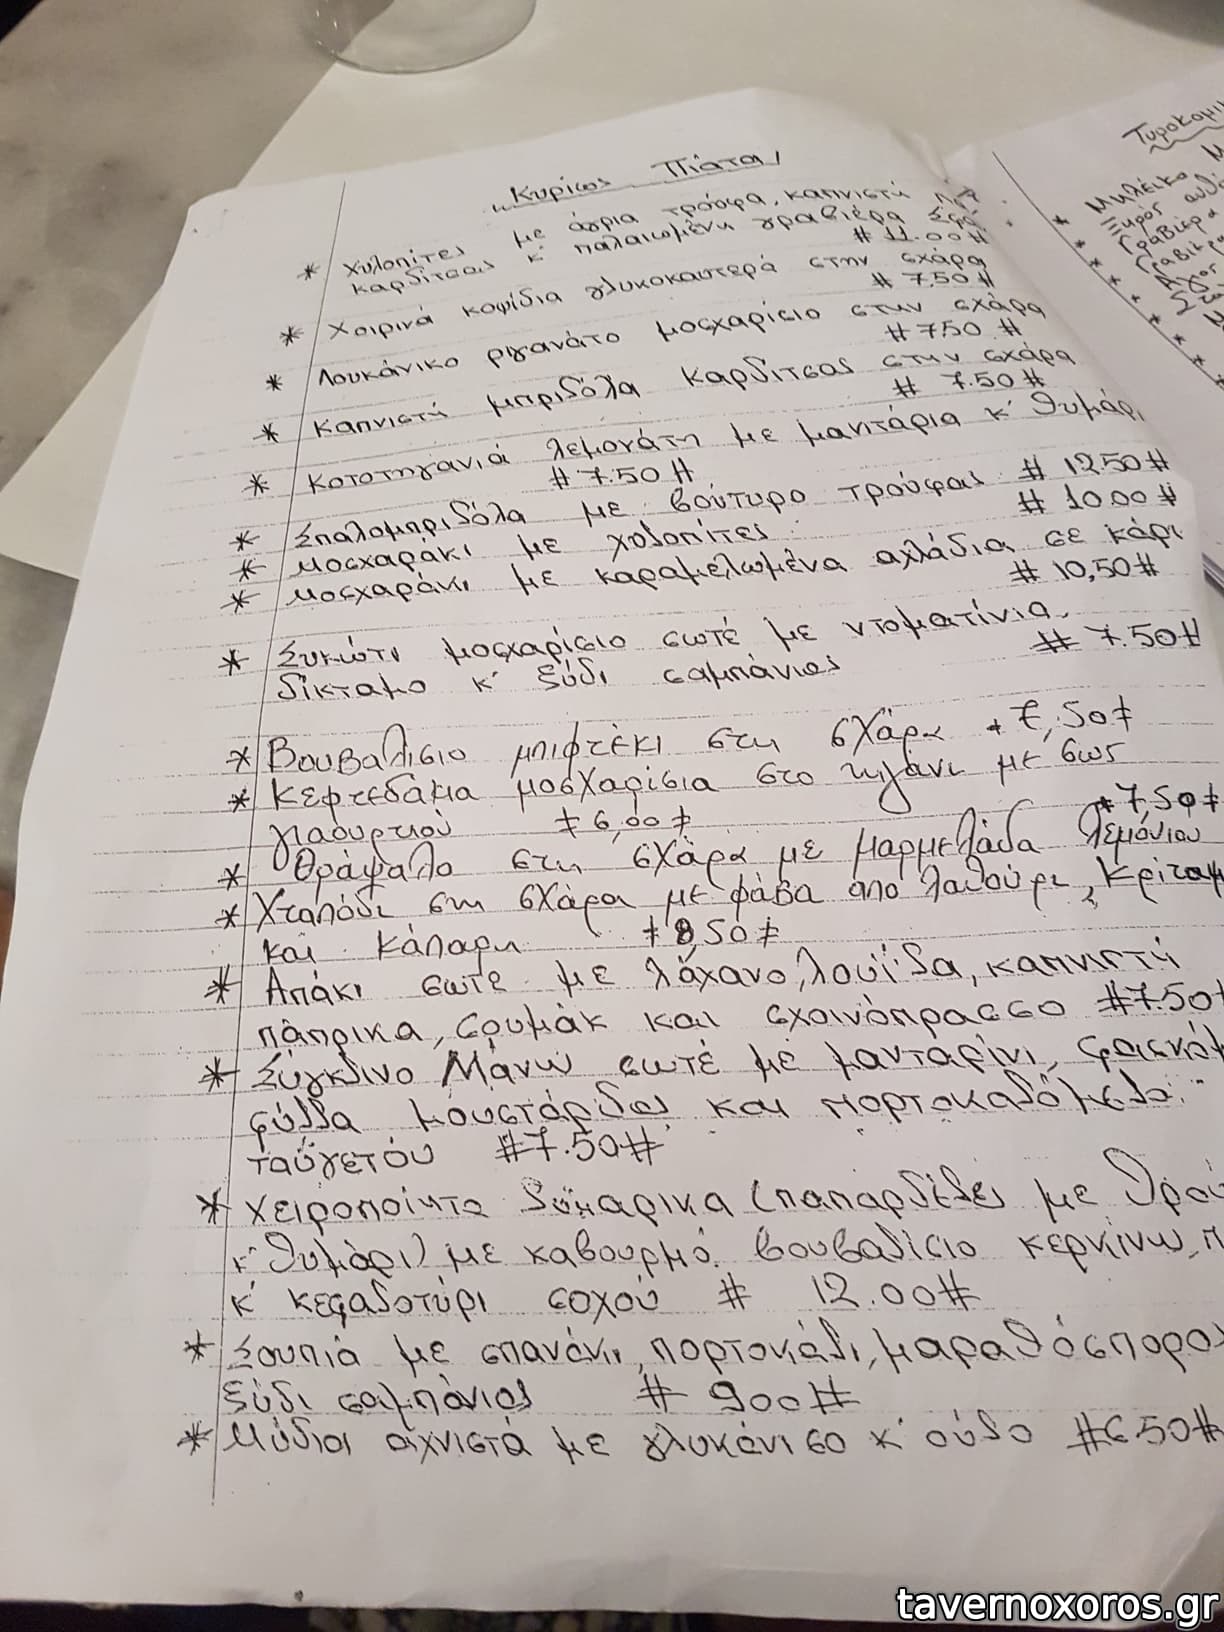 „Κυρίως Πιάτα!
* Χυλοπίτες με άγρια τρόφα, καπνιστή
Καρδίτσας κ' παλαιωμένη γραβιέρα
# 11.00 #
* Χοιρινά κοψίδια γλυκοκαυτερά στην σχάρα
# 7.50 #
* Λουκάνικο ριγανάτο μοσχαρίσιο στην σχάρα
# 7.50 #
* Καπνιστή μπριδόλα Καρδίτσας στην σχάρα
# 7.50 #
* Κοτοτηγανιά λεμονάτη με μανιτάρια κ' θυμάρι
# 7.50 #
* Σπαλομπριδόλα με βούτυρο τρούφας # 12.50 #
* Μοσχαράκι με χυλοπίτες # 10.00 #
* Μοσχαράκι με καραμελωμένα αχλάδια σε κάρι
# 10,50 #
* Συκώτι μοσχαρίσιο σωτέ με ντοματίνια
δίκταμο κ' ξύδι σαμπάνιας # 7.50 #
* Βουβαλίσιο μπιφτέκι στη σχάρα # 7,50 #
* Κεφτεδάκια μοσχαρίσια στο τηγάνι με σως
γιαουρτιού # 6,00 #
* Θράψαλο στη σχάρα με μαρμελάδα λεμόνιου # 7,50 #
* Χταπόδι στη σχάρα με φάβα απο λαθούρι, κρίταμ
και κάπαρη # 8,50 #
* Απάκι σωτέ με λάχανο, λουίδα, καπνιστή
πάπρικα, σουμάκ και σχοινόπρασσο # 7.50 #
* Σύγκλινο Μάνης σωτέ με μανταρίνι,
φύλλα μουστάρδας και πορτοκαλόμελο
ταϋγετου # 7.50 #
* Χειροποίητα ζυμαρικα (παπαρδέλες με θρού
κ' θυμάρι) με καβουρμά βουβαλίσιο κερκίνης, π
κ' κεφαλοτύρι σοχού # 12.00 #
* Σουπιά με σπανάκι, πορτοκάλι, μαραθόσπορο,
ξύδι σαμπάνιας # 9.00 #
* Μύδια αχνιστά με γλυκάνισο κ' ούζο # 6.50 #
Τυροκομικ
* Μηλείκο
* Ξηρός ανθό
* Γραβιέρα
* Γραβιέρα
tavernoxoros.gr